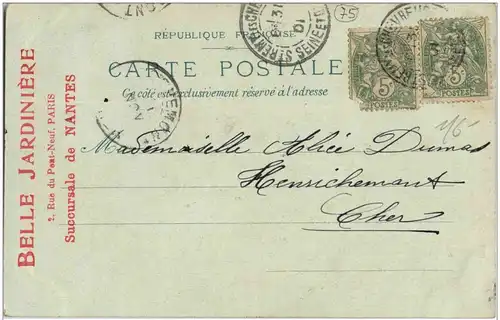 75
RÉPUBLIQUE FRANÇAISE
CARTE POSTALE
Ce côté est exclusivement réservé à l'adresse
BELLE JARDINIÈRE
2, Rue du Pont-Neuf, PARIS
Succursale de NANTES
Mademoiselle Alice Dumas
Henrichemont
Cher
5
POSTES
5
POSTES